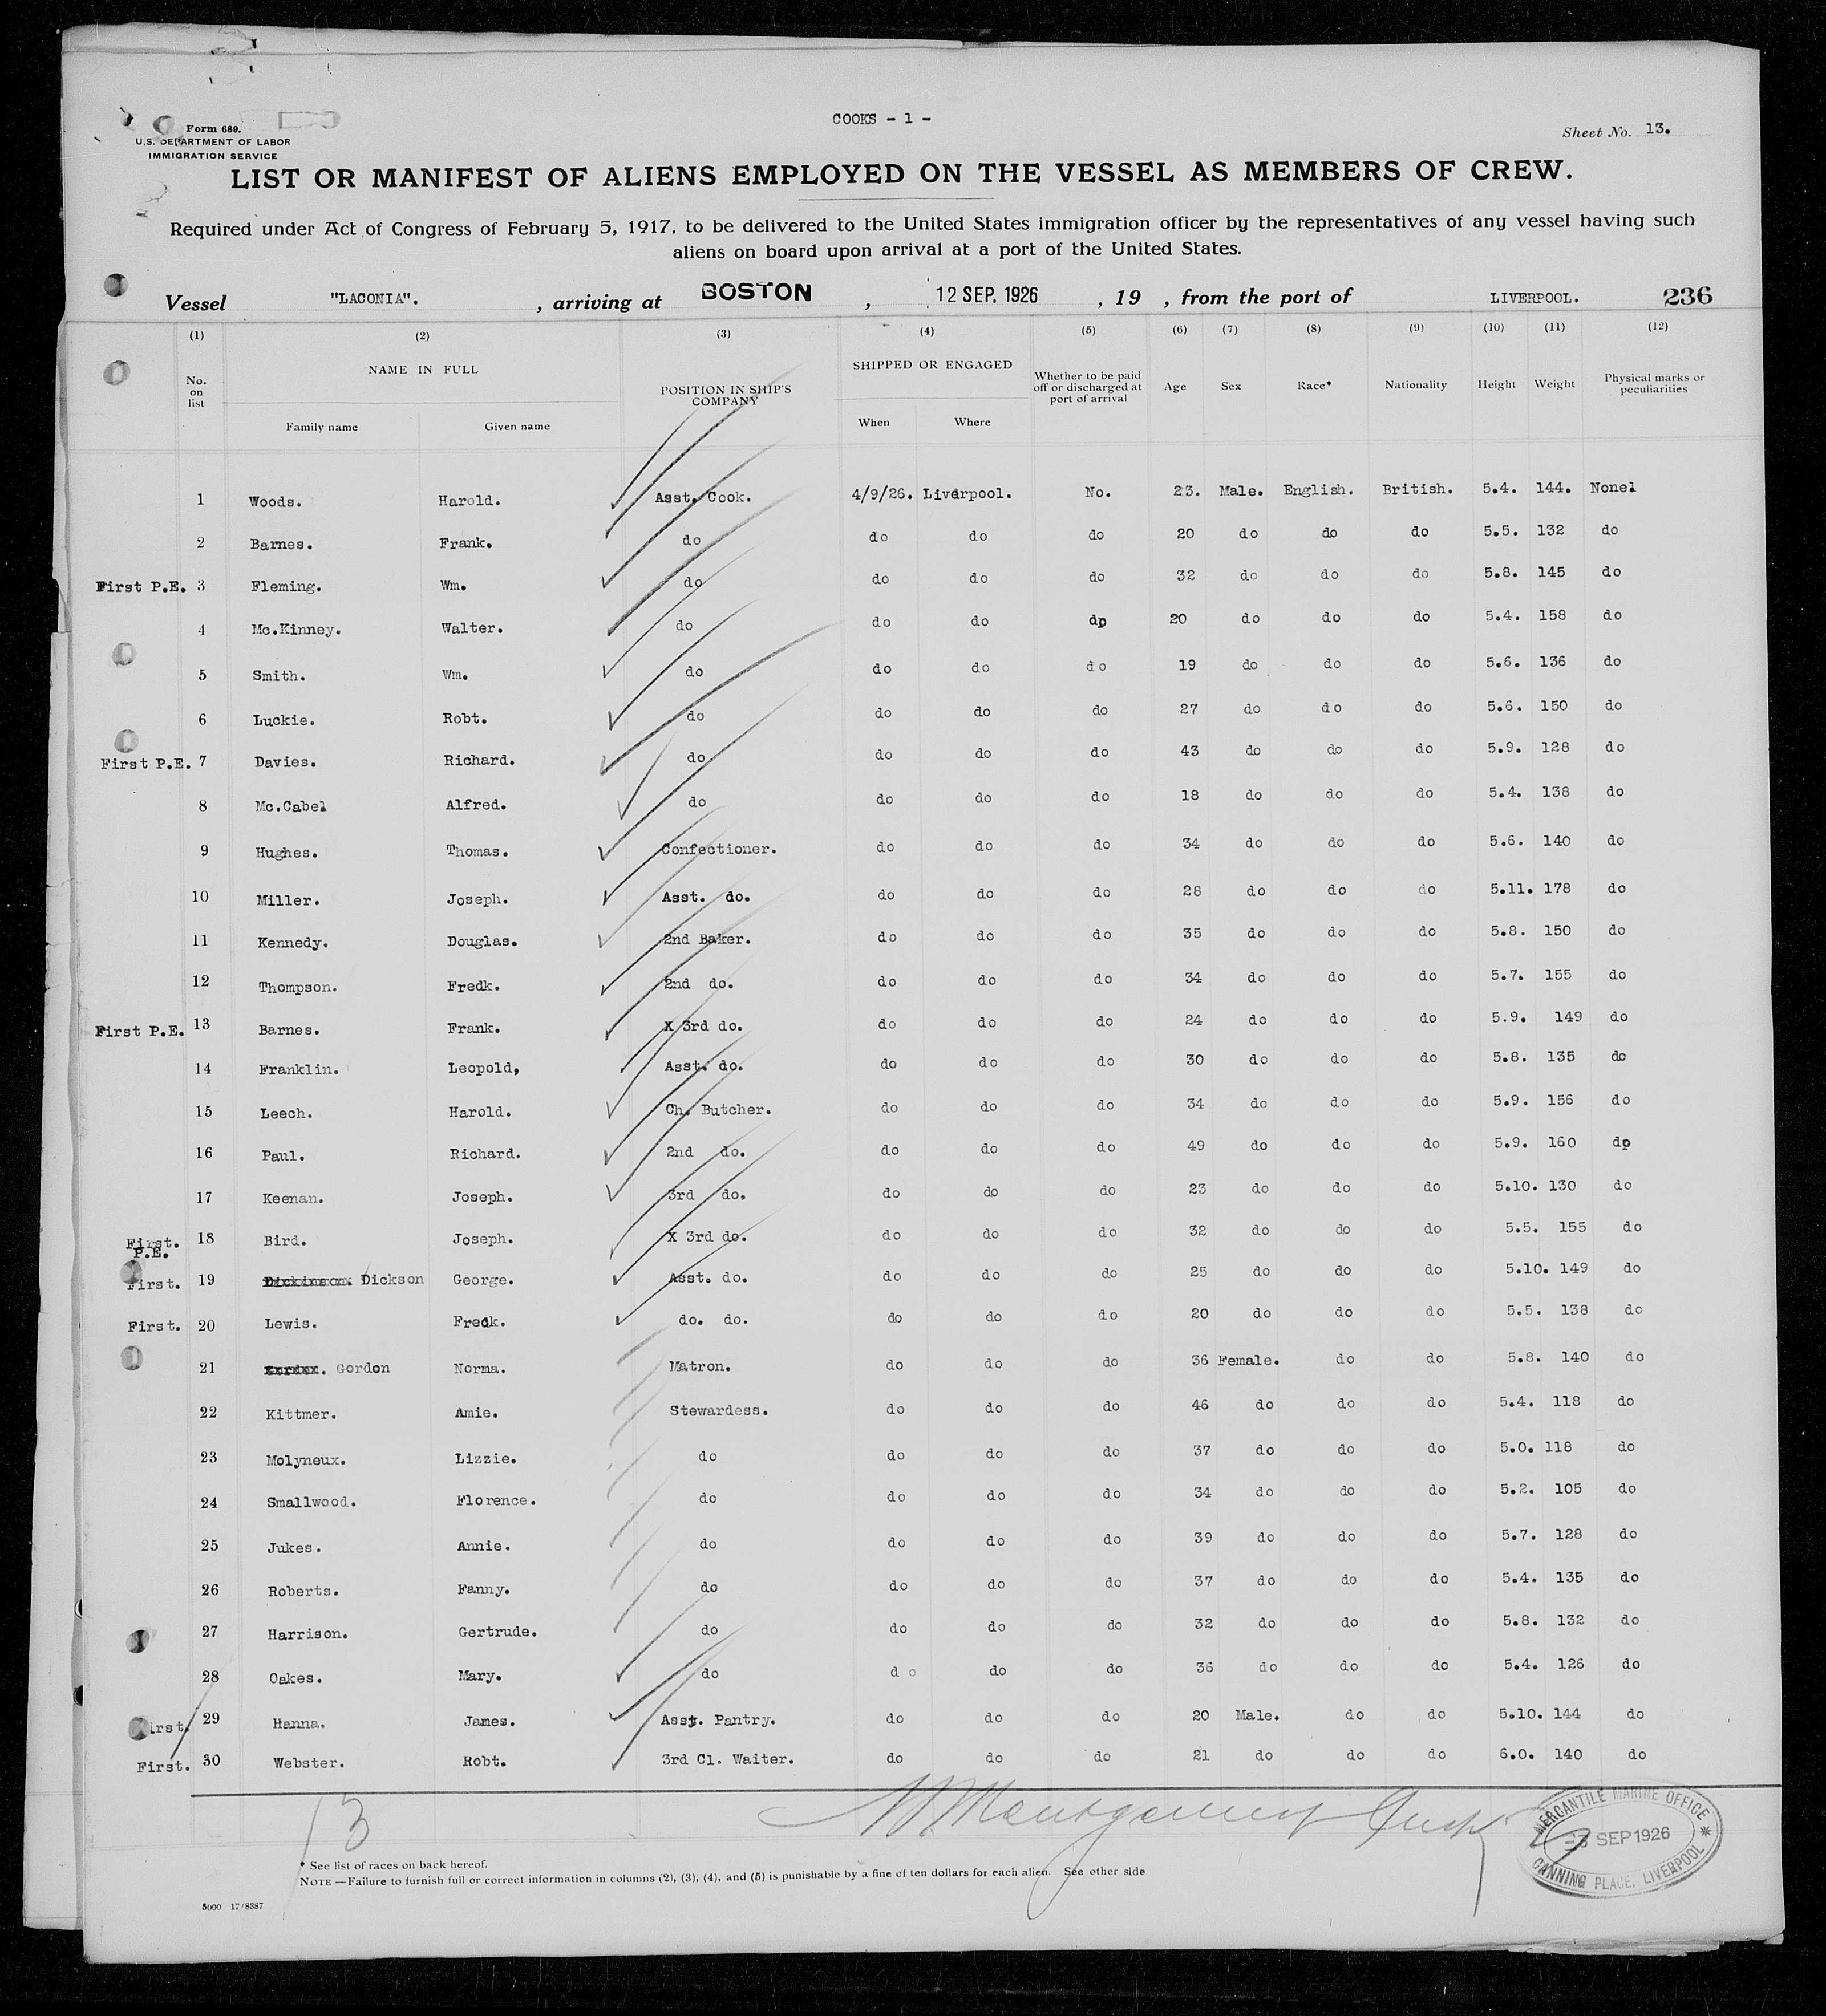 COOKS - 1 -
Form 689.
U.S. DEPARTMENT OF LABOR
IMMIGRATION SERVICE
Sheet No. 13.
LIST OR MANIFEST OF ALIENS EMPLOYED ON THE VESSEL AS MEMBERS OF CREW.
Required under Act of Congress of February 5, 1917, to be delivered to the United States immigration officer by the representatives of any vessel having such
aliens on board upon arrival at a port of the United States.
Vessel "LACONIA". , arriving at BOSTON , 12 SEP. 1926 , 19 , from the port of LIVERPOOL. 236
(1) (2) (3) (4) (5) (6) (7) (8) (9) (10) (11) (12)
No. on list NAME IN FULL POSITION IN SHIP'S COMPANY SHIPPED OR ENGAGED Whether to be paid off or discharged at port of arrival Age Sex Race* Nationality Height Weight Physical marks or peculiarities
Family name Given name When Where
1 Woods. Harold. Asst. Cook. 4/9/26. Liverpool. No. 23. Male. English. British. 5.4. 144. Nonel
2 Barnes. Frank. do do do do 20 do do do 5.5. 132 do
First P.E. 3 Fleming. Wm. do do do do 32 do do do 5.8. 145 do
4 Mc.Kinney. Walter. do do do dp 20 do do do 5.4. 158 do
5 Smith. Wm. do do do do 19 do do do 5.6. 136 do
6 Luckie. Robt. do do do do 27 do do do 5.6. 150 do
First P.E. 7 Davies. Richard. do do do do 43 do do do 5.9. 128 do
8 Mc.Cabel Alfred. do do do do 18 do do do 5.4. 138 do
9 Hughes. Thomas. Confectioner. do do do 34 do do do 5.6. 140 do
10 Miller. Joseph. Asst. do. do do do 28 do do do 5.11. 178 do
11 Kennedy. Douglas. 2nd Baker. do do do 35 do do do 5.8. 150 do
12 Thompson. Fredk. 2nd do. do do do 34 do do do 5.7. 155 do
First P.E. 13 Barnes. Frank. X 3rd do. do do do 24 do do do 5.9. 149 do
14 Franklin. Leopold, Asst. do. do do do 30 do do do 5.8. 135 do
15 Leech. Harold. Ch. Butcher. do do do 34 do do do 5.9. 156 do
16 Paul. Richard. 2nd do. do do do 49 do do do 5.9. 160 dp
17 Keenan. Joseph. 3rd do. do do do 23 do do do 5.10. 130 do
First. P.E. 18 Bird. Joseph. X 3rd do. do do do 32 do do do 5.5. 155 do
First. 19 Dickinson. Dickson George. Asst. do. do do do 25 do do do 5.10. 149 do
First. 20 Lewis. Fredk. do. do. do do do 20 do do do 5.5. 138 do
21 Gordon Norma. Matron. do do do 36 Female. do do 5.8. 140 do
22 Kittmer. Amie. Stewardess. do do do 46 do do do 5.4. 118 do
23 Molyneux. Lizzie. do do do do 37 do do do 5.0. 118 do
24 Smallwood. Florence. do do do do 34 do do do 5.2. 105 do
25 Jukes. Annie. do do do do 39 do do do 5.7. 128 do
26 Roberts. Fanny. do do do do 37 do do do 5.4. 135 do
27 Harrison. Gertrude. do do do do 32 do do do 5.8. 132 do
28 Oakes. Mary. do do do do 36 do do do 5.4. 126 do
First. 29 Hanna. James. Asst. Pantry. do do do 20 Male. do do 5.10. 144 do
First. 30 Webster. Robt. 3rd Cl. Waiter. do do do 21 do do do 6.0. 140 do
13
Montgomery
MERCANTILE MARINE OFFICE
-3 SEP 1926
CANNING PLACE, LIVERPOOL
* See list of races on back hereof.
NOTE.—Failure to furnish full or correct information in columns (2), (3), (4), and (5) is punishable by a fine of ten dollars for each alien. See other side
5000 17/8387